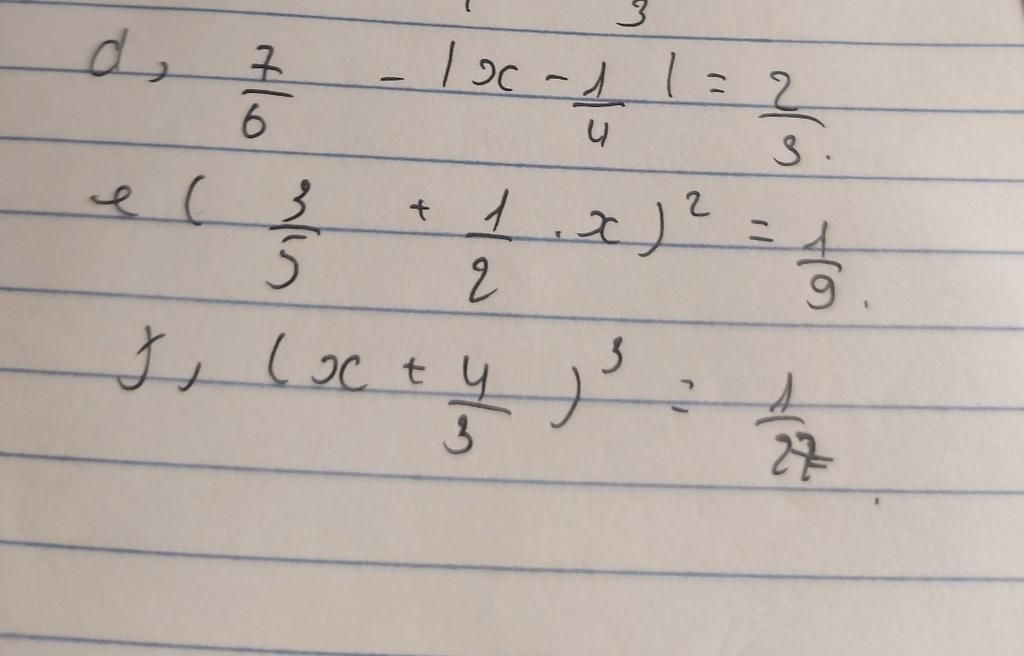 3
d, 7/6 - |x - 1/4| = 2/3.
e ( 3/5 + 1/2 . x )² = 1/9.
f, ( x + 4/3 )³ = 1/27.